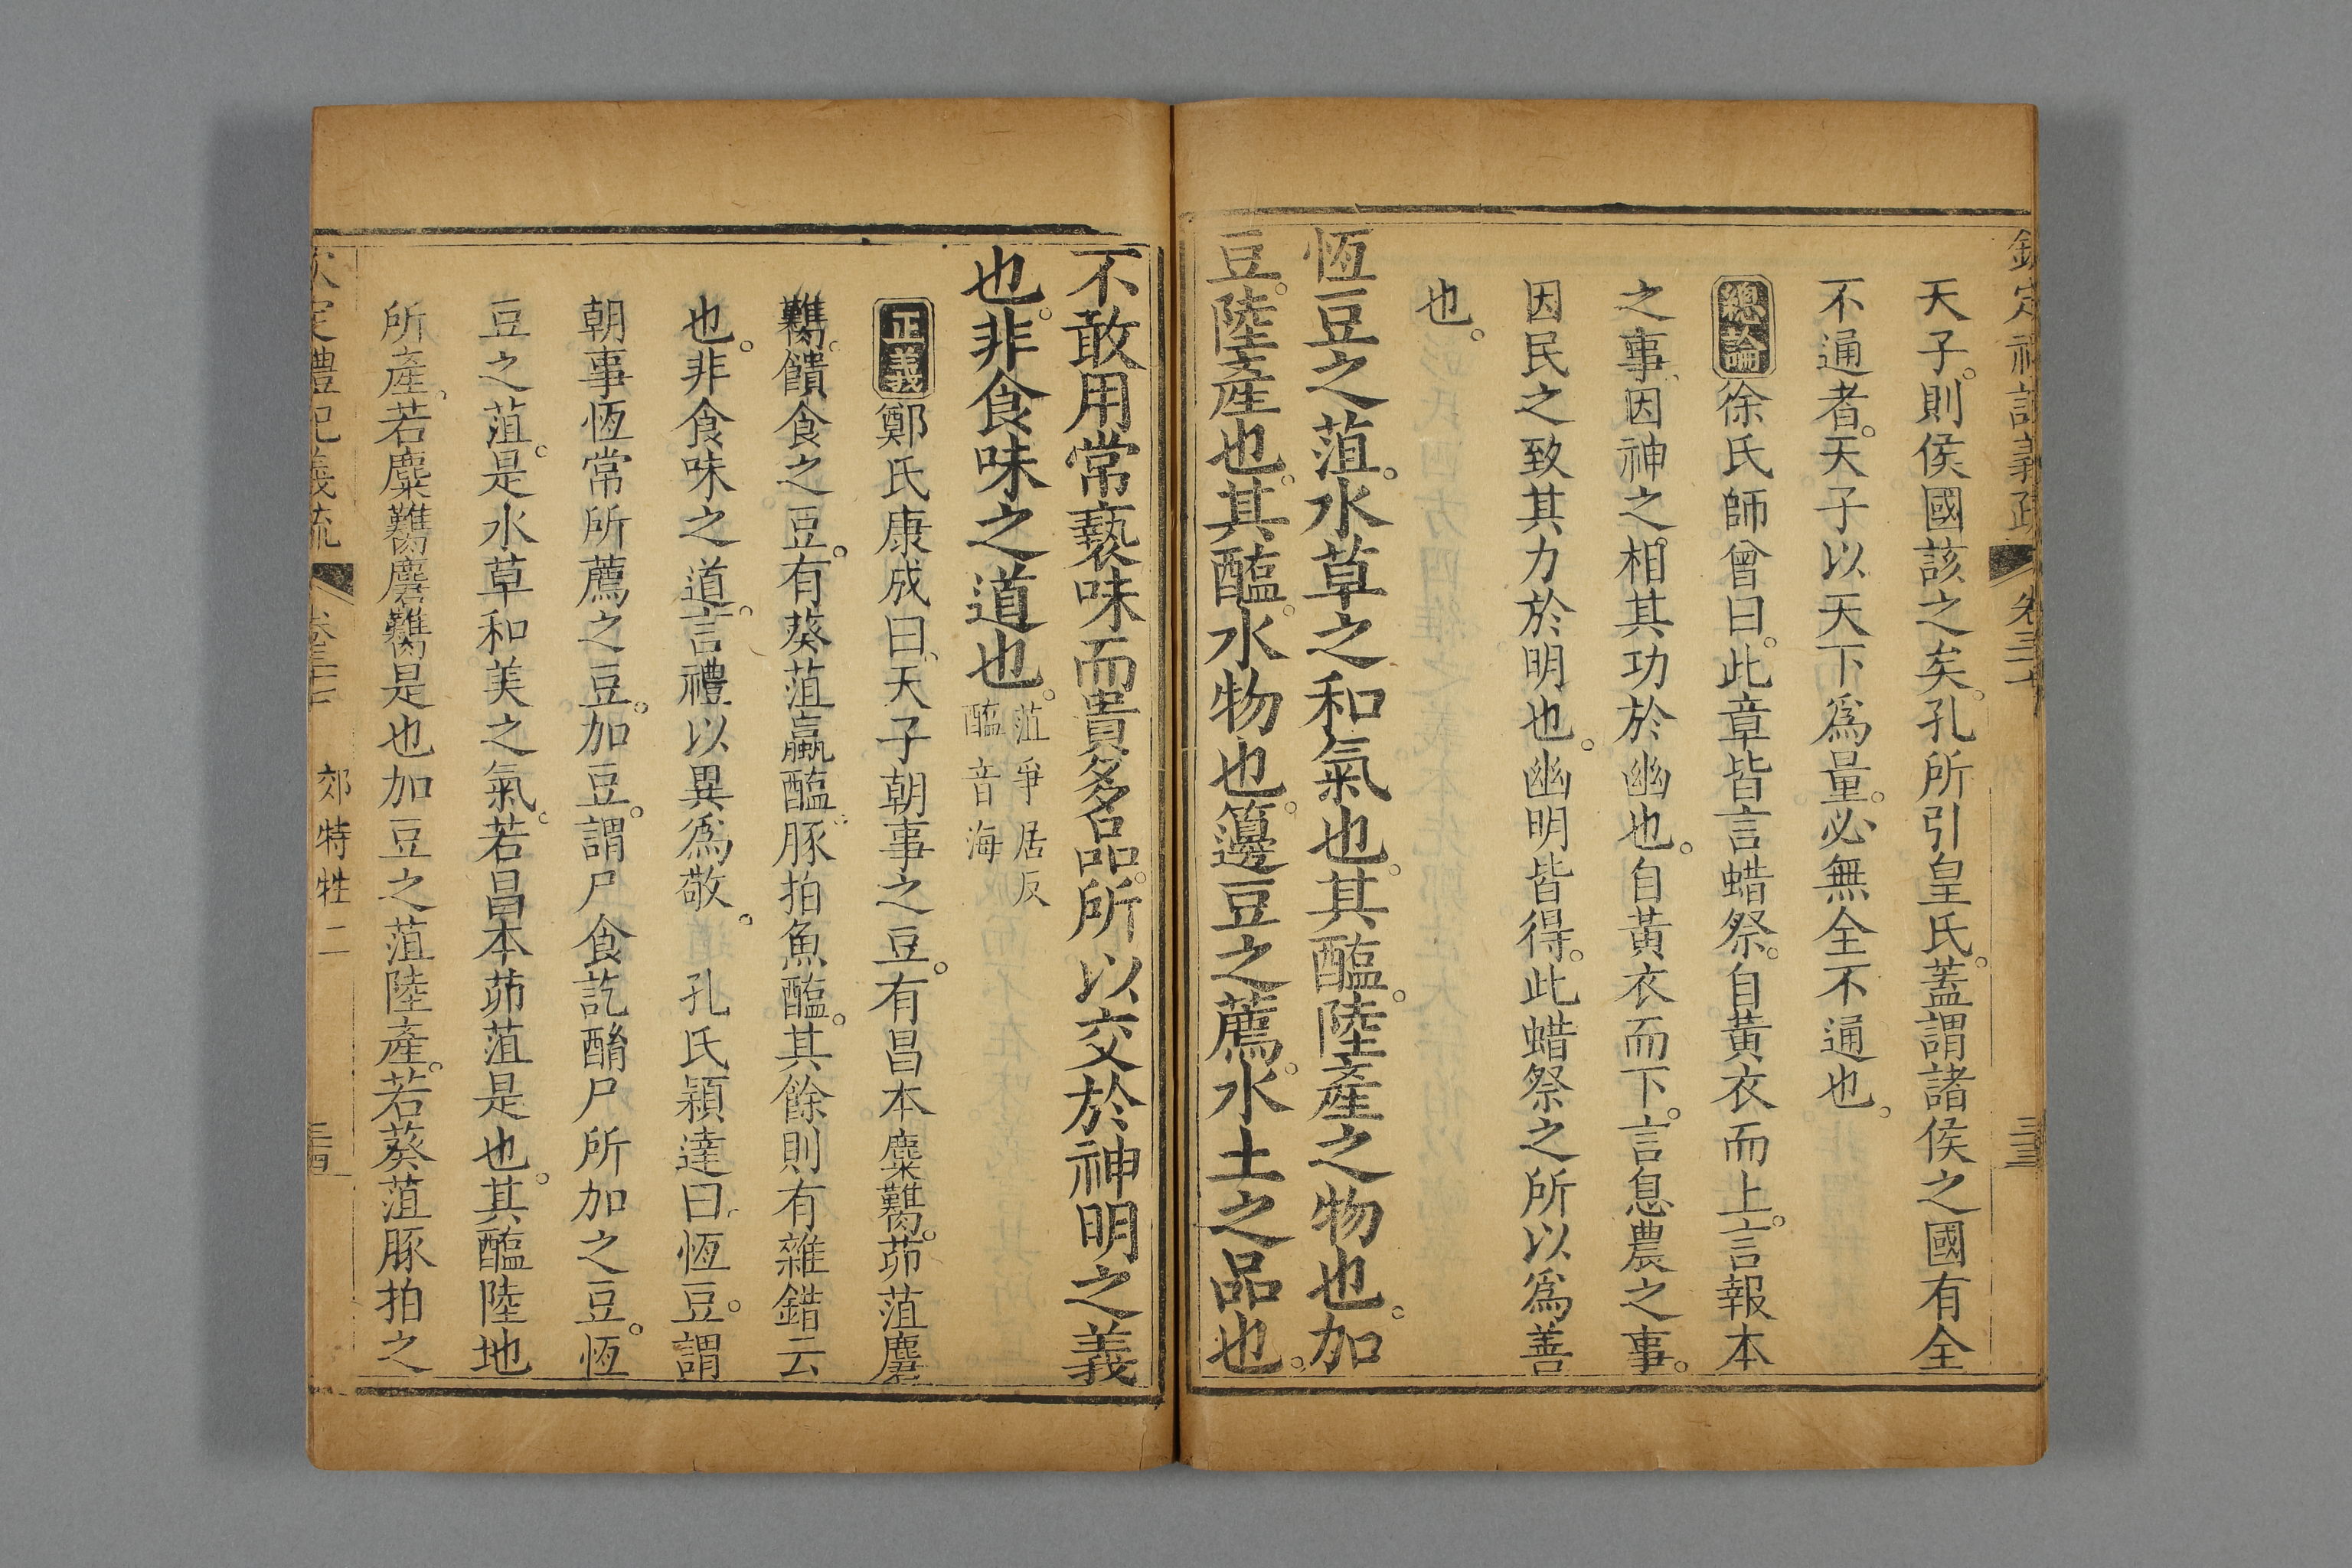 天子。則侯國該之矣。孔所引皇氏。蓋謂諸侯之國有全
不通者。天子以天下爲量。必無全不通也。
總論徐氏師曾曰。此章皆言蜡祭。自黃衣而上。言報本
之事。因神之相其功於幽也。自黃衣而下。言息農之事。
因民之致其力於明也。幽明皆得。此蜡祭之所以爲善
也。
恆豆之菹。水草之和氣也。其醢。陸產之物也。加
豆。陸產也。其醢。水物也。籩豆之薦。水土之品也。
卷三十
三十三
不敢用常褻味而貴多品。所以交於神明之義
也。非食味之道也。菹爭居反
醢音海
正義鄭氏康成曰。天子朝事之豆。有昌本麋臡。茆菹麇
臡。饋食之豆。有葵菹蠃醢。豚拍魚醢。其餘則有雜錯云
也。非食味之道。言禮以異爲敬。 孔氏穎達曰。恆豆。謂
朝事恆常所薦之豆。加豆。謂尸食訖酳尸所加之豆。恆
豆之菹。是水草和美之氣。若昌本茆菹是也。其醢陸地
所產。若麋臡麇臡是也加豆之菹陸產。若葵菹豚拍之
禮記義疏
郊特牲二